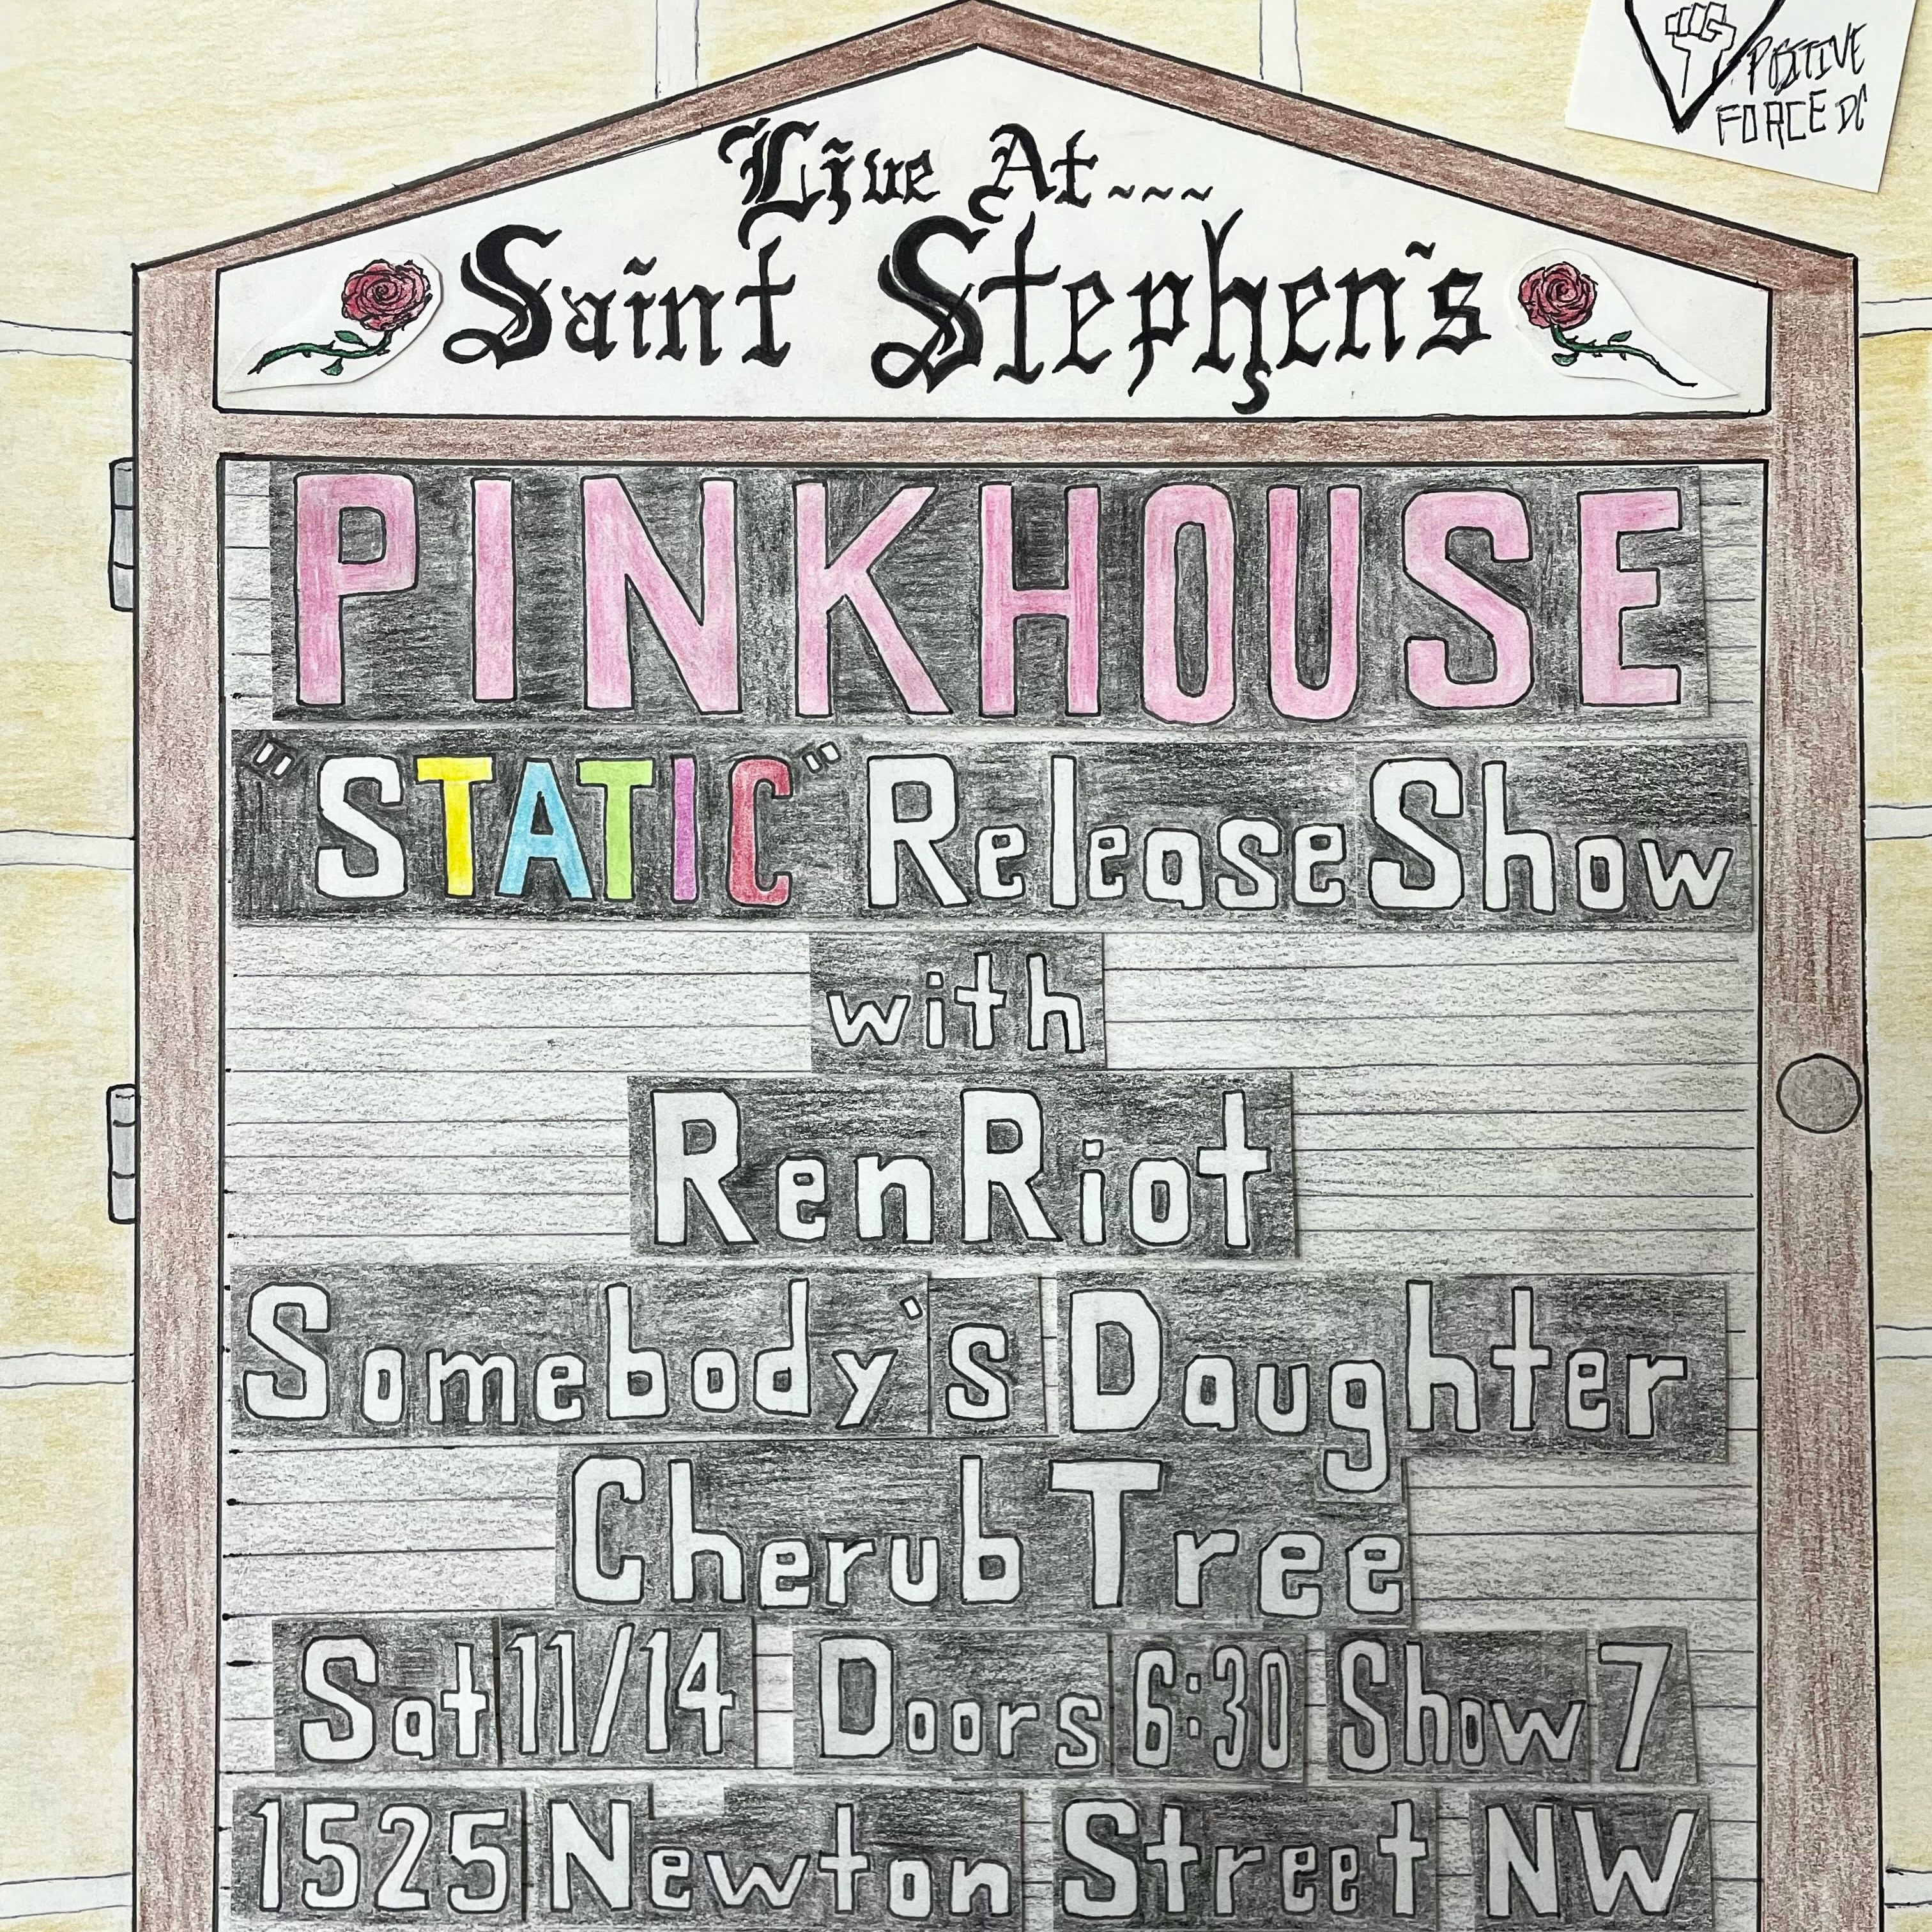 POSITIVE
FORCE DC
Live At....
Saint Stephen's
PINKHOUSE
"STATIC" Release Show
with
Ren Riot
Somebody's Daughter
Cherub Tree
Sat 11/14 Doors 6:30 Show 7
1525 Newton Street NW